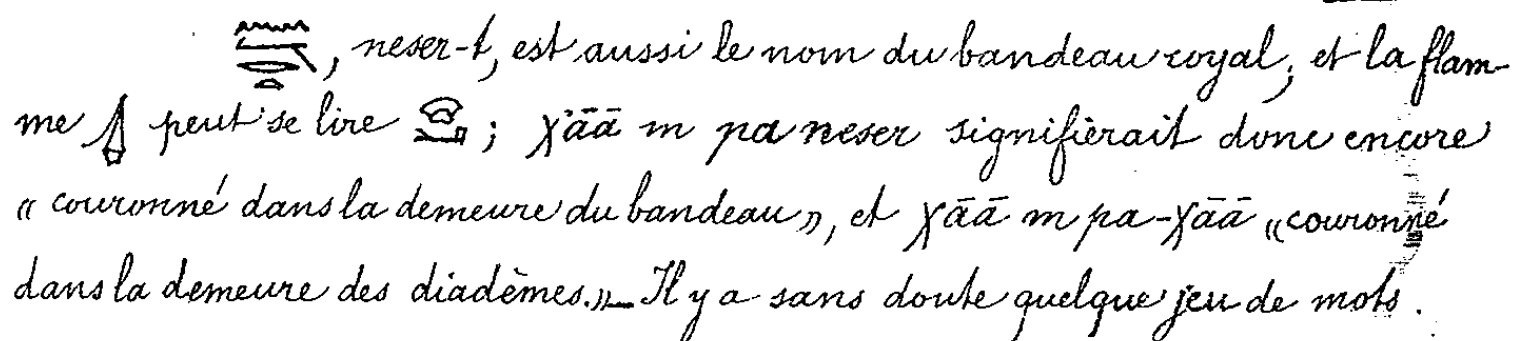 𓈖𓊃𓂋𓏏, neser-t, est aussi le nom du bandeau royal; et la flam-
me peut se lire 𓈍𓂝; χāā m pa neser signifierait donc encore
« couronné dans la demeure du bandeau », et χāā m pa-χāā « couronné
dans la demeure des diadèmes.» — Il y a sans doute quelque jeu de mots.